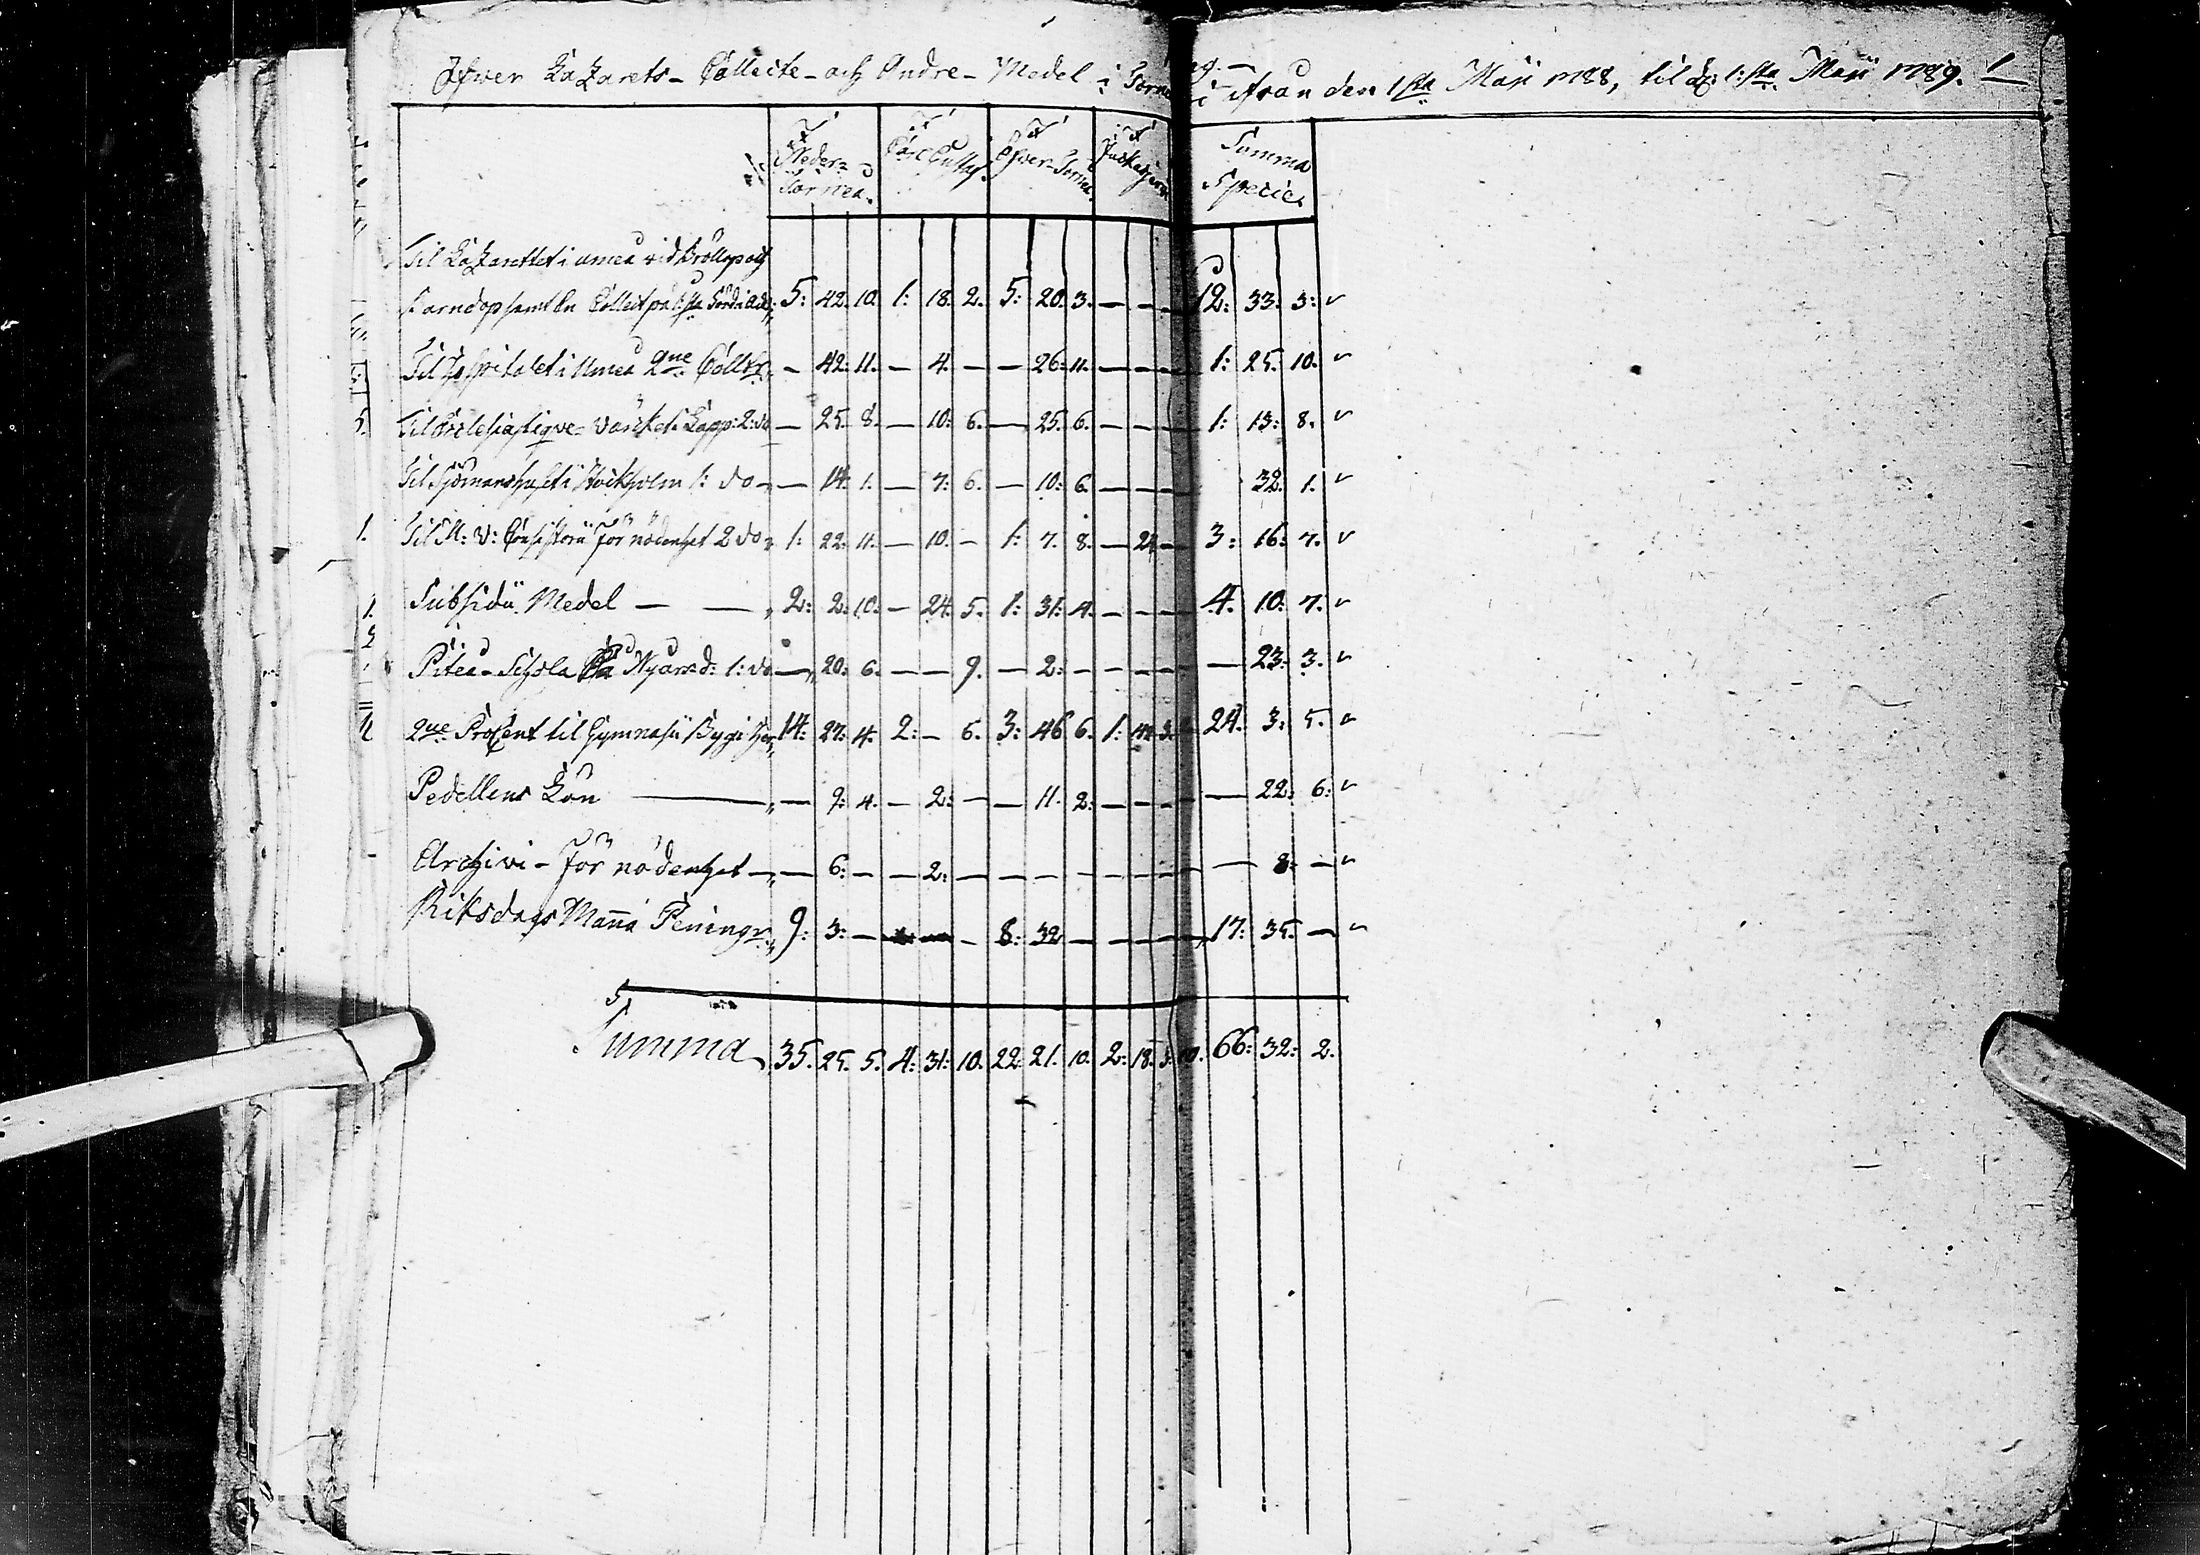 Öfver Lazarets- Collecte- och Andre- Medel i ifrån den 1sta Maji 1788, til d: 1:sta Maji 1789.
Neder- Torneå. Carl Gustaf. Öfver- Torneå. Summa Specie.
Til Lazarettet i Umeå vid Bröllop och
Barndop samt En Collect på 5: 42. 10. 1: 18. 2. 5: 20. 3. — — — 12: 33: 3:
Til Hospitalet i Umeå 2ne Collr — 42: 11. — 4. — — 26: 11. — — — 1: 25. 10.
Til Ecclesiastique- Värcket i Lapp: 2: do — 25. 8. — 10: 6. — 25. 6. — — — 1: 13: 8.
Til Sjömanshuset i Stockholm 1: do — 14: 1. — 7: 6. — 10: 6. — — — 32. 1.
Til M: V: Consistorii Förnödenhet 2 do 1: 22: 11. — 10. — 1: 7. 8. — 24 — 3: 16: 7.
Subsidii Medel — — 2: 2: 10. — 24. 5. 1: 31: 4. — — — 4. 10: 7.
Piteå- Schola På Nyårsd: 1: do — 20: 6. — — 9. — 2: — — — — — 23: 3.
2ne Procent til Gymnasii Bygn 14: 27: 4. 2: — 6. 3: 46 6. 1: 24. 3: 5.
Pedellens Lön — — 9: 4. — 2: — — 11. 2: — — — — 22: 6:
Archivi- Förnödenhet — — 6: — — 2: — — — — — — — — 8: —
Riksdags Manna Peningr 9: 3: — — 8: 32 — — — — 17: 35. —
Summa 35. 25. 5. 4: 31: 10. 22. 21. 10. 2: 18. 66: 32: 2.